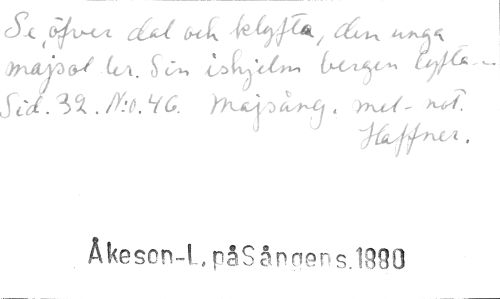 Se, öfver dal och klyfta, den unga
majsol ler. Sin ishjelm bergen lyfta...
Sid. 32. N:o. 46. Majsång. mel-not.
Haffner.
Åkeson-L. på Sångens. 1880